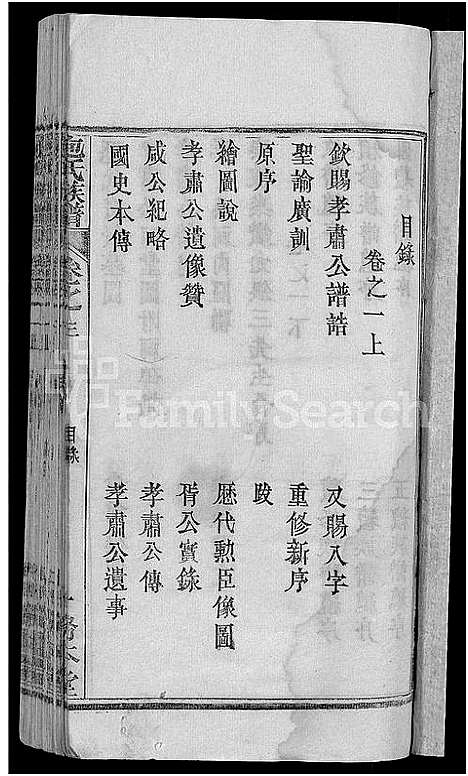 目錄
卷之一上
欽賜孝肅公譜誥 又賜八字
聖諭廣訓 重修新序
原序 跋
繪圖說 歷代勳臣像圖
孝肅公遺像贊 胥公實錄
咸公紀略 孝肅公傳
國史本傳 孝肅公遺事
包氏族譜
卷之一上
目錄
FamilySearch